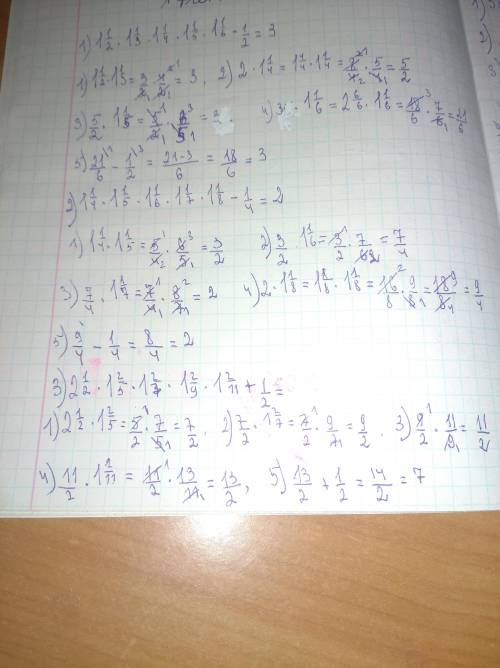 1) 1 1/2 · 1 1/3 · 1 1/4 · 1 1/5 · 1 1/6 - 1/2 = 3
1) 1 1/2 · 1 1/3 = 3/2 · 4/3 = 3, 2) 2 · 1 1/4 = 1 1/4 · 1 1/4 = 8/4 · 5/4 = 5/2
3) 5/2 · 1 1/5 = 5/2 · 6/5 = 4) 3 · 1 1/6 = 2 6/6 · 1 1/6 = 18/6 · 7/6 = 21/6
5) 21/6 - 1/2 = 21-3/6 = 18/6 = 3
2) 1 1/4 · 1 1/5 · 1 1/6 · 1 1/7 · 1 1/8 - 1/4 = 2
1) 1 1/4 · 1 1/5 = 5/4 · 6/5 = 3/2 2) 3/2 · 1 1/6 = 3/2 · 7/6 = 7/4
3) 7/4 · 1 1/7 = 7/4 · 8/7 = 2 4) 2 · 1 1/8 = 1 8/8 · 1 1/8 = 16/8 · 9/8 = 18/8 = 9/4
5) 9/4 - 1/4 = 8/4 = 2
3) 2 1/2 · 1 2/5 · 1 2/7 · 1 2/9 · 1 2/11 + 1/2 =
1) 2 1/2 · 1 2/5 = 5/2 · 7/5 = 7/2, 2) 7/2 · 1 2/7 = 7/2 · 9/7 = 9/2, 3) 9/2 · 11/9 = 11/2
4) 11/2 · 1 2/11 = 11/2 · 13/11 = 13/2, 5) 13/2 + 1/2 = 14/2 = 7